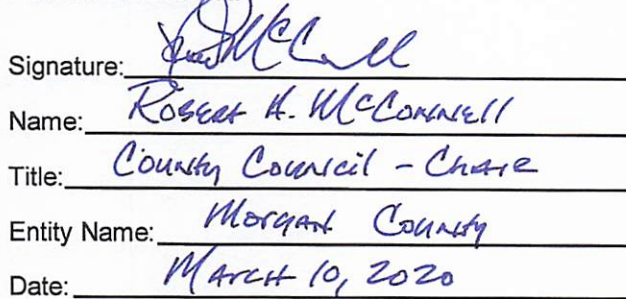 Signature:
Name: Robert H. McConnell
Title: County Council - Chair
Entity Name: Morgan County
Date: March 10, 2020